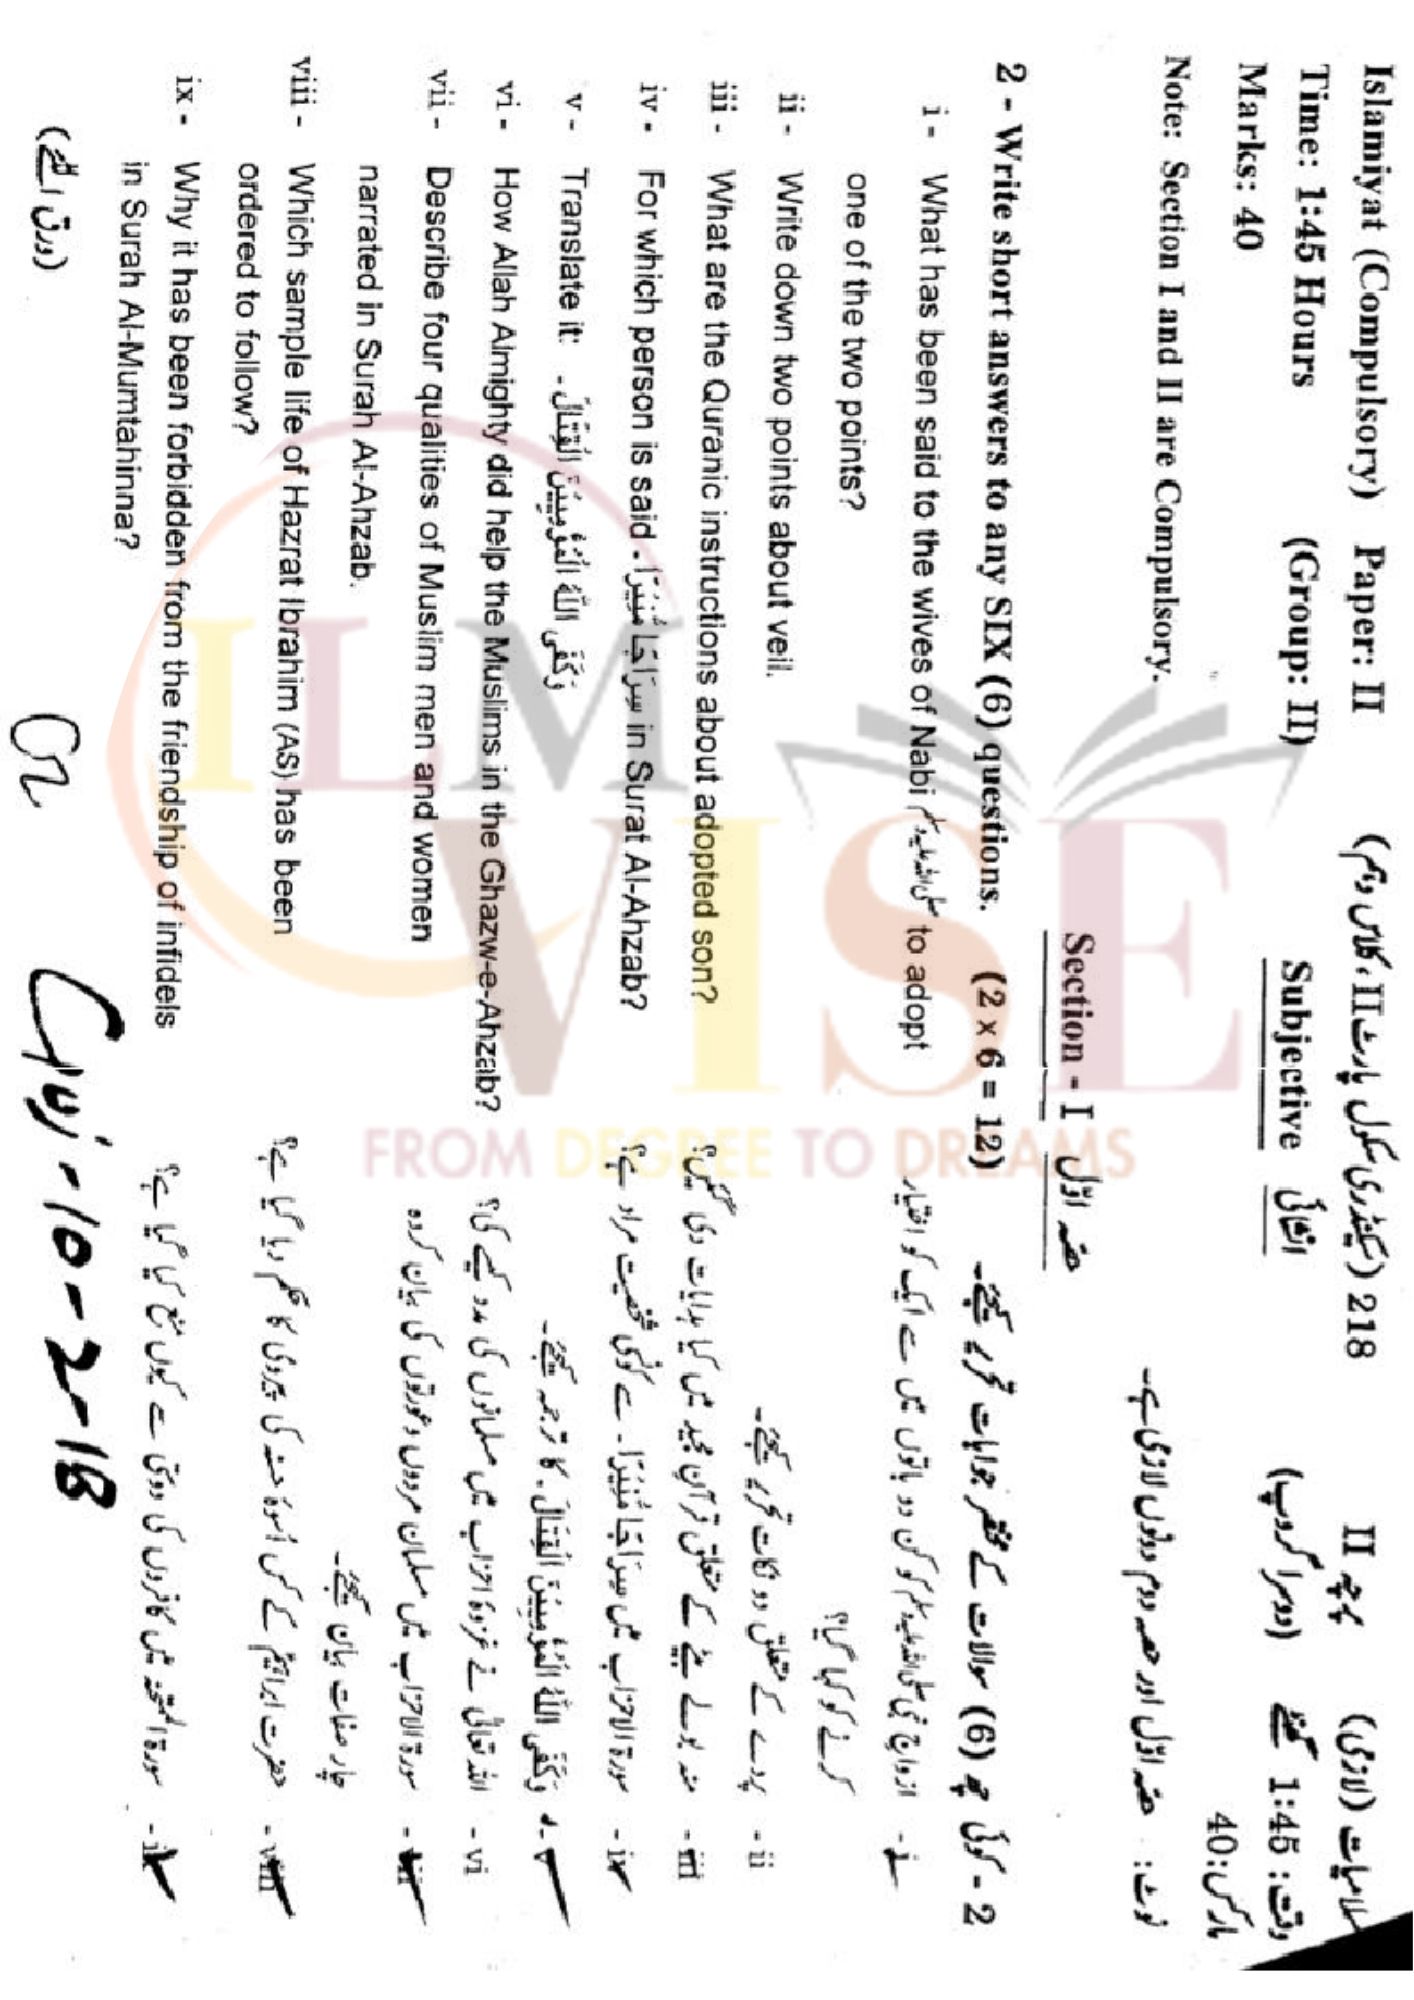 Islamiyat (Compulsory) Paper: II (سیکنڈری سکول پارٹ II، کلاس دہم) 218 پرچہ II اسلامیات (لازمی)
Time: 1:45 Hours (Group: II) Subjective انشائی (دوسرا گروپ) وقت: 1:45 گھنٹے
Marks: 40 مارکس: 40
Note: Section I and II are Compulsory. نوٹ: حصہ اوّل اور حصہ دوم دونوں لازمی ہے۔
Section - I حصہ اوّل
2 - Write short answers to any SIX (6) questions. (2 x 6 = 12) 2 - کوئی چھ (6) سوالات کے مختصر جوابات تحریر کیجئے۔
i - What has been said to the wives of Nabi صلی اللہ علیہ وسلم to adopt i - ازواج نبی صلی اللہ علیہ وسلم کو کن دو باتوں میں سے ایک کو اختیار
one of the two points? کرنے کو کہا گیا؟
ii - Write down two points about veil. ii - پردے کے متعلق دو نکات تحریر کیجئے۔
iii - What are the Quranic instructions about adopted son? iii - منہ بولے بیٹے کے متعلق قرآن مجید میں کیا ہدایات دی گئیں؟
iv - For which person is said - سِرَاجًا مُّنِيْرًا in Surat Al-Ahzab? iv - سورۃ الاحزاب میں سِرَاجًا مُّنِيْرًا۔ سے کونسی شخصیت مراد ہے؟
v - Translate it: وَكَفَى اللّٰهُ الْمُؤْمِنِيْنَ الْقِتَالَ - v - وَكَفَى اللّٰهُ الْمُؤْمِنِيْنَ الْقِتَالَ۔ کا ترجمہ کیجئے۔
vi - How Allah Almighty did help the Muslims in the Ghazw-e-Ahzab? vi - اللہ تعالیٰ نے غزوۂ احزاب میں مسلمانوں کی مدد کیسے کی؟
vii - Describe four qualities of Muslim men and women vii - سورۃ الاحزاب میں مسلمان مردوں و عورتوں کی بیان کردہ
narrated in Surah Al-Ahzab. چار صفات بیان کیجئے۔
viii - Which sample life of Hazrat Ibrahim (AS) has been viii - حضرت ابراہیمؑ کے کس اسوۂ حسنہ کی پیروی کا حکم دیا گیا ہے؟
ordered to follow?
ix - Why it has been forbidden from the friendship of infidels ix - سورۃ الممتحنہ میں کافروں کی دوستی سے کیوں منع کیا گیا ہے؟
in Surah Al-Mumtahinna?
(ورق الٹیے) Guj-10-2-18
ILM
VISE
FROM DEGREE TO DREAMS